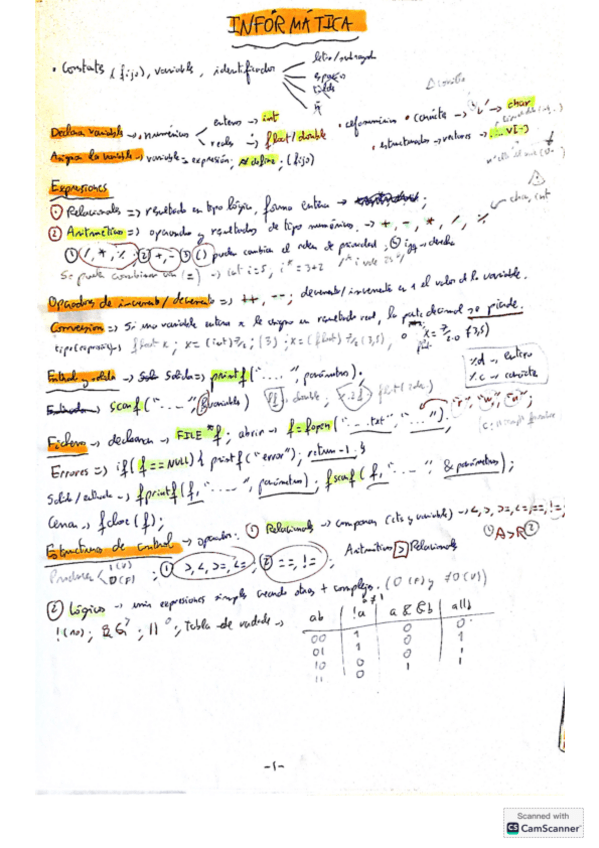 INFORMÁTICA
letra/subrayado
• Constants (fijo), variables, identificador
espacio
tildes
ñ
Declara variable → numéricos
entero → int
reales → float/double
• alfanuméricos • carácter → 'v' → char
• estructurados → vectores → ... v[-]
Asigna la variable → variable = expresión; # define; (fijo)
Expresiones
① Relacionales => resultado en tipo lógico, forma entera →
② Aritméticos => operando y resultados de tipo numérico. → +, -, *, /, %
char, int
① /, *, % ② +, - ③ () puede cambiar el orden de prioridad; izq → decha
Se puede combinar con (=) → int i=5; i* = 3+2
Operadores de incremento/decremento => ++, --; decrementa/incrementa en 1 el valor de la variable.
Conversion => Si una variable entera x le asigno un resultado real, la parte decimal se pierde.
tipo(expresión) float x; x = (int) 7/2; (3); x = (float) 7/2 (3,5), o x = 7/2.0 (3,5)
Entrada y salida → Salida => printf("....", parámetros).
%d → entero
%c → carácter
Entrada → scanf("....", &variables)
Fichero → declaran → FILE *f; abrir → f=fopen("...txt", "..."). "r", "w", "a";
Errores => if (f==NULL) { printf("error"); return -1. }
Salida/entrada → fprintf(f, "....", parámetros); fscanf(f, "....", &parámetros);
Cerrar → fclose(f);
Estructuras de control → operador. ① Relacionals → comparan (cts y variable) → <, >, >=, <=, ==, !=;
Producen 1(V) 0(F) ; ① >, <, >=, <= ; ② ==, != ;
Aritméticos > Relacionals
① A>R ②
② Lógicos → unir expresiones simples creando otras + complejas. (0 (F) y ≠0 (V))
! (no); &&; ||; tabla de verdad →
ab !a a && b a||b
00 1 0 0
01 1 0 1
10 0 0 1
11 0 1 1
-1-
Scanned with
CS CamScanner